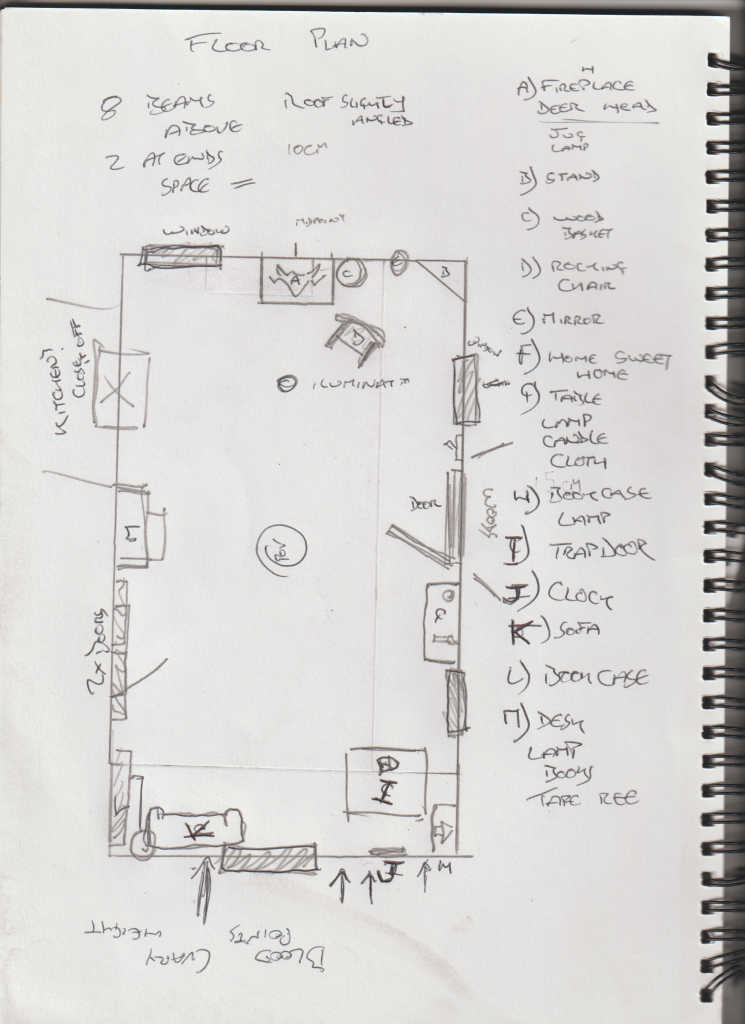 FLOOR PLAN
8 BEAMS ABOVE
2 AT ENDS
SPACE =
ROOF SLIGHTLY
ANGLED
10CM
A) FIREPLACE
DEER HEAD
JUG
LAMP
B) STAND
C) WOOD
BASKET
D) ROCKING
CHAIR
E) MIRROR
F) HOME SWEET
HOME
TABLE
LAMP
CANDLE
CLOTH
H) BOOKCASE
LAMP
I) TRAP DOOR
J) CLOCK
K) SOFA
L) BOOKCASE
M) DESK
LAMP
BOOKS
TAPE REE
WINDOW
MIDPOINT
A
C
B
D
WINDOW
ILUMINATI
KITCHEN?
CLOSE OFF
DOOR
POV
M
2X DOORS
K
J
H
BLOOD
POINTS
(VARY
HEIGHT